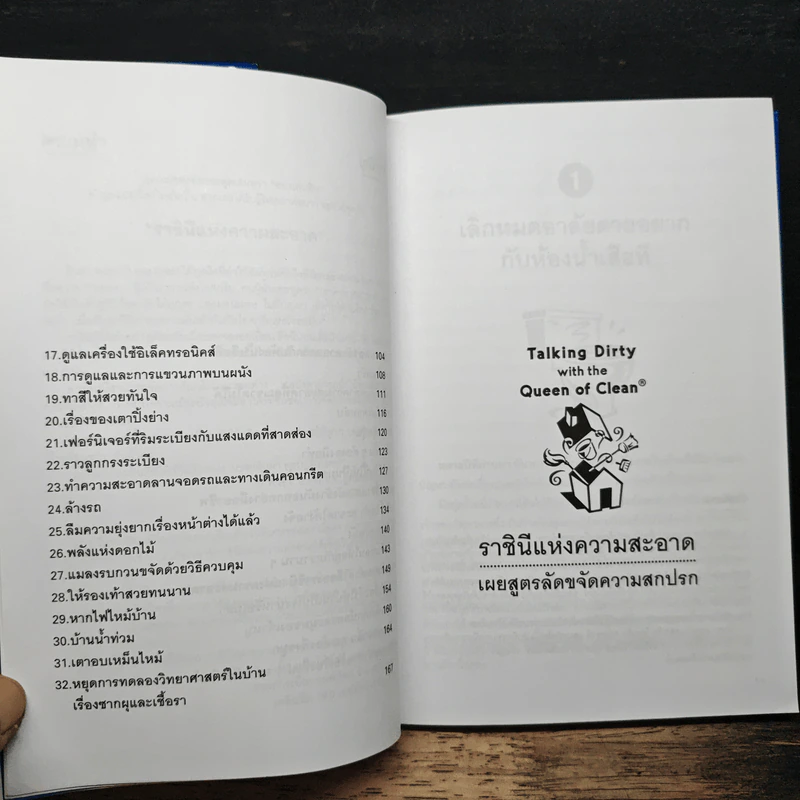 17.ดูแลเครื่องใช้อิเล็คทรอนิคส์ 104
18.การดูแลและการแขวนภาพบนผนัง 108
19.ทาสีให้สวยทันใจ 111
20.เรื่องของเตาปิ้งย่าง 116
21.เฟอร์นิเจอร์ที่ริมระเบียงกับแสงแดดที่สาดส่อง 120
22.ราวลูกกรงระเบียง 123
23.ทำความสะอาดลานจอดรถและทางเดินคอนกรีต 127
24.ล้างรถ 130
25.ลืมความยุ่งยากเรื่องหน้าต่างได้แล้ว 134
26.พลังแห่งดอกไม้ 140
27.แมลงรบกวนขจัดด้วยวิธีควบคุม 143
28.ให้รองเท้าสวยทนนาน 149
29.หากไฟไหม้บ้าน 154
30.บ้านน้ำท่วม 160
31.เตาอบเหม็นไหม้ 164
32.หยุดการทดลองวิทยาศาสตร์ในบ้าน 167
เรื่องซากผุและเชื้อรา
Talking Dirty
with the
Queen of Clean®
ราชินีแห่งความสะอาด
เผยสูตรลัดขจัดความสกปรก